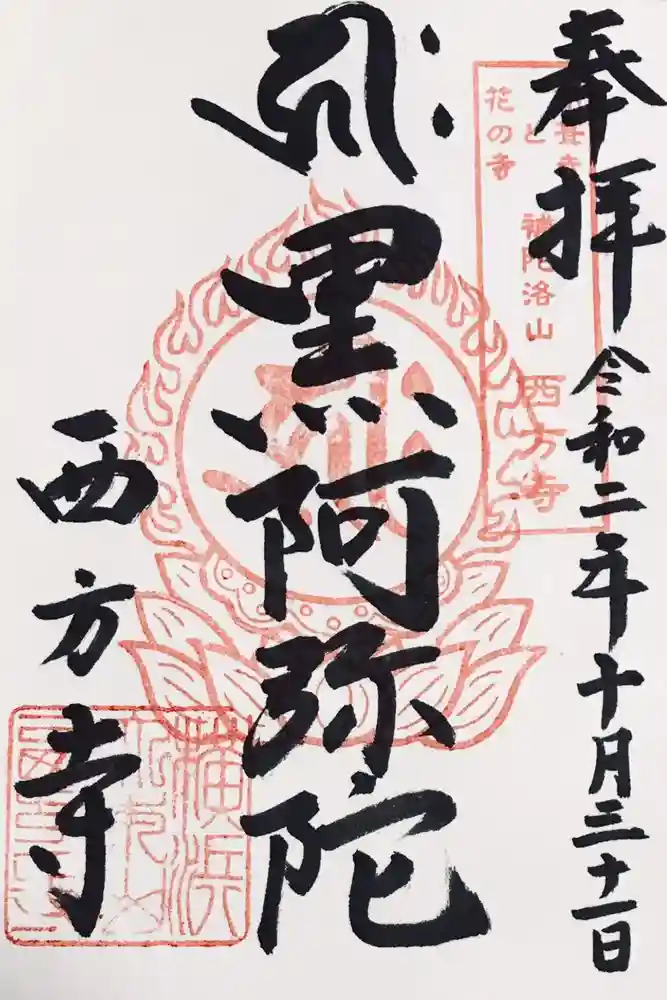 奉拝
令和二年十月三十一日
と
花の寺
補陀洛山 西方寺
黒阿弥陀
西方寺
横浜